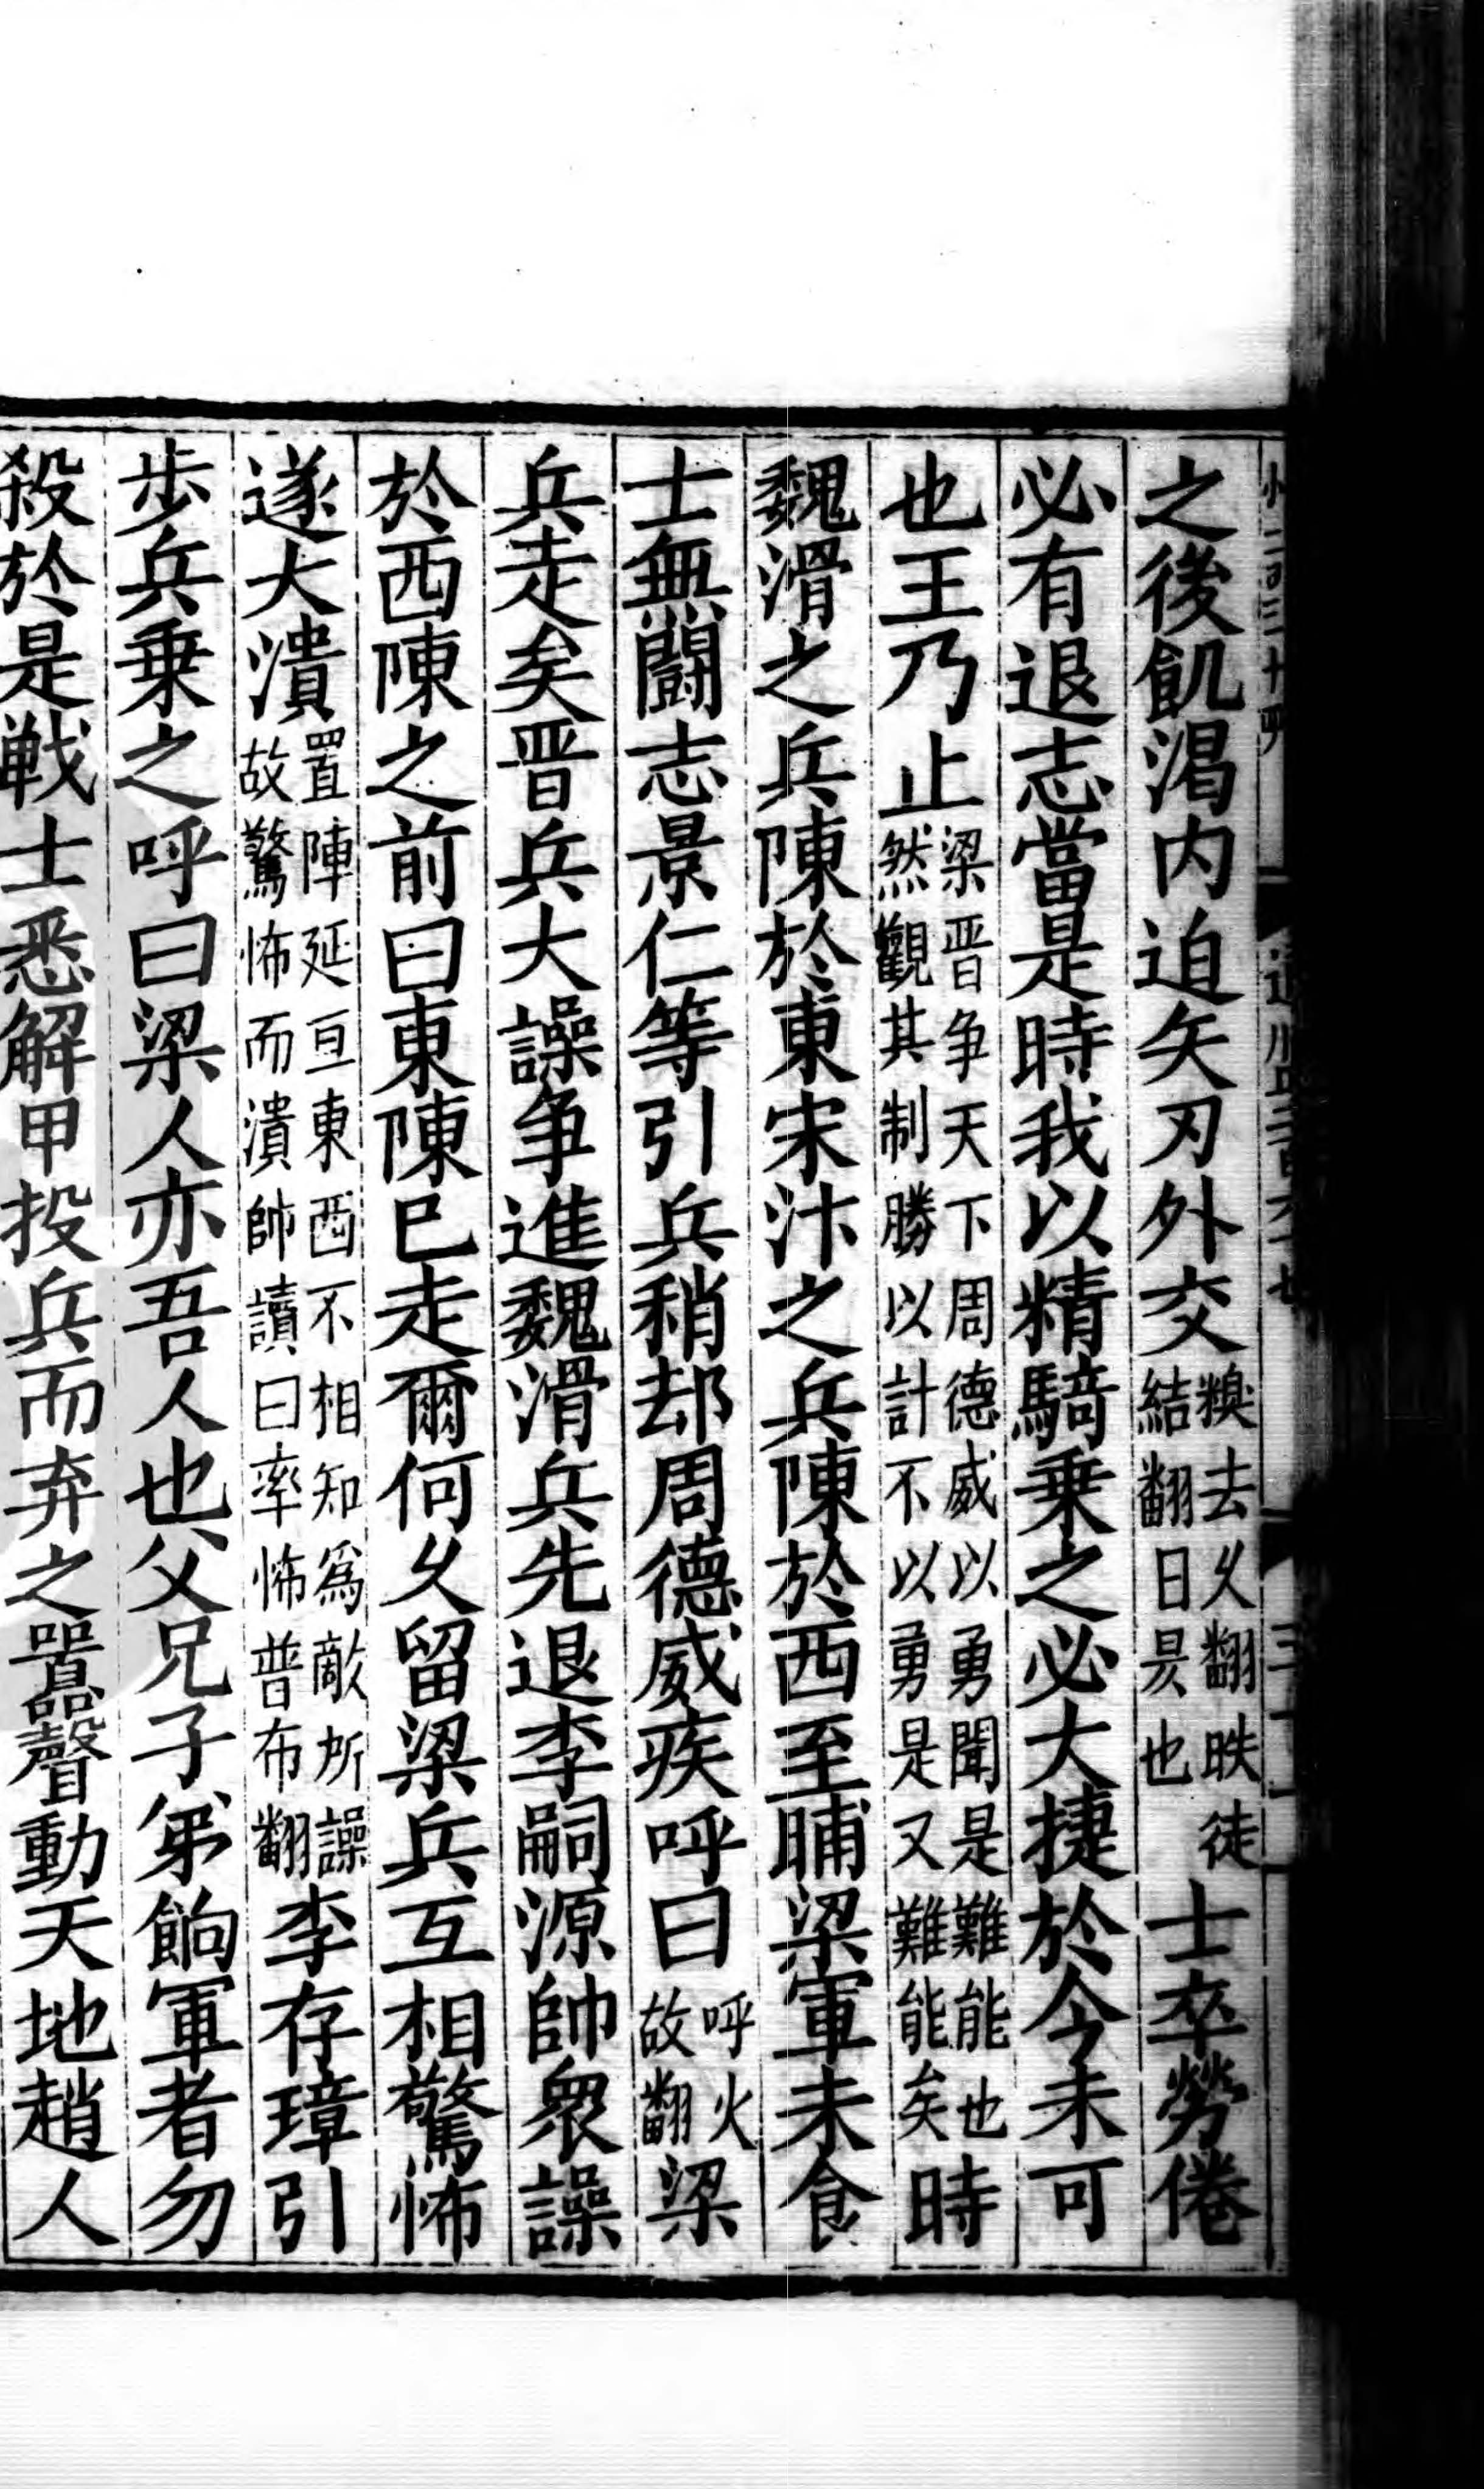 之後飢渴内迫矢刃外交糗去乆翻昳徒結翻日昃也士卒勞倦
必有退志當是時我以精騎乗之必大捷於今未可
也王乃止梁晋争天下周德威以勇聞是難能也然觀其制勝以計不以勇是又難能矣時
魏滑之兵陳於東宋汴之兵陳於西至晡梁軍未食
士無鬪志景仁等引兵稍却周德威疾呼曰呼火故翻梁
兵走矣晋兵大譟争進魏滑兵先退李嗣源帥衆譟
於西陳之前曰東陳已走爾何乆留梁兵互相驚怖
遂大潰置陣延亘東西不相知為敵所譟故驚怖而潰帥讀曰率怖普布翻李存璋引
歩兵乗之呼曰梁人亦吾人也父兄子弟餉軍者勿
殺於是戦士悉解甲投兵而弃之囂聲動天地趙人